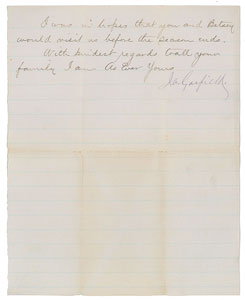 I was in hopes that you and Betsey
would visit us before the season ends.
With kindest regards to all your
family I am As Ever Yours
J. A. Garfield